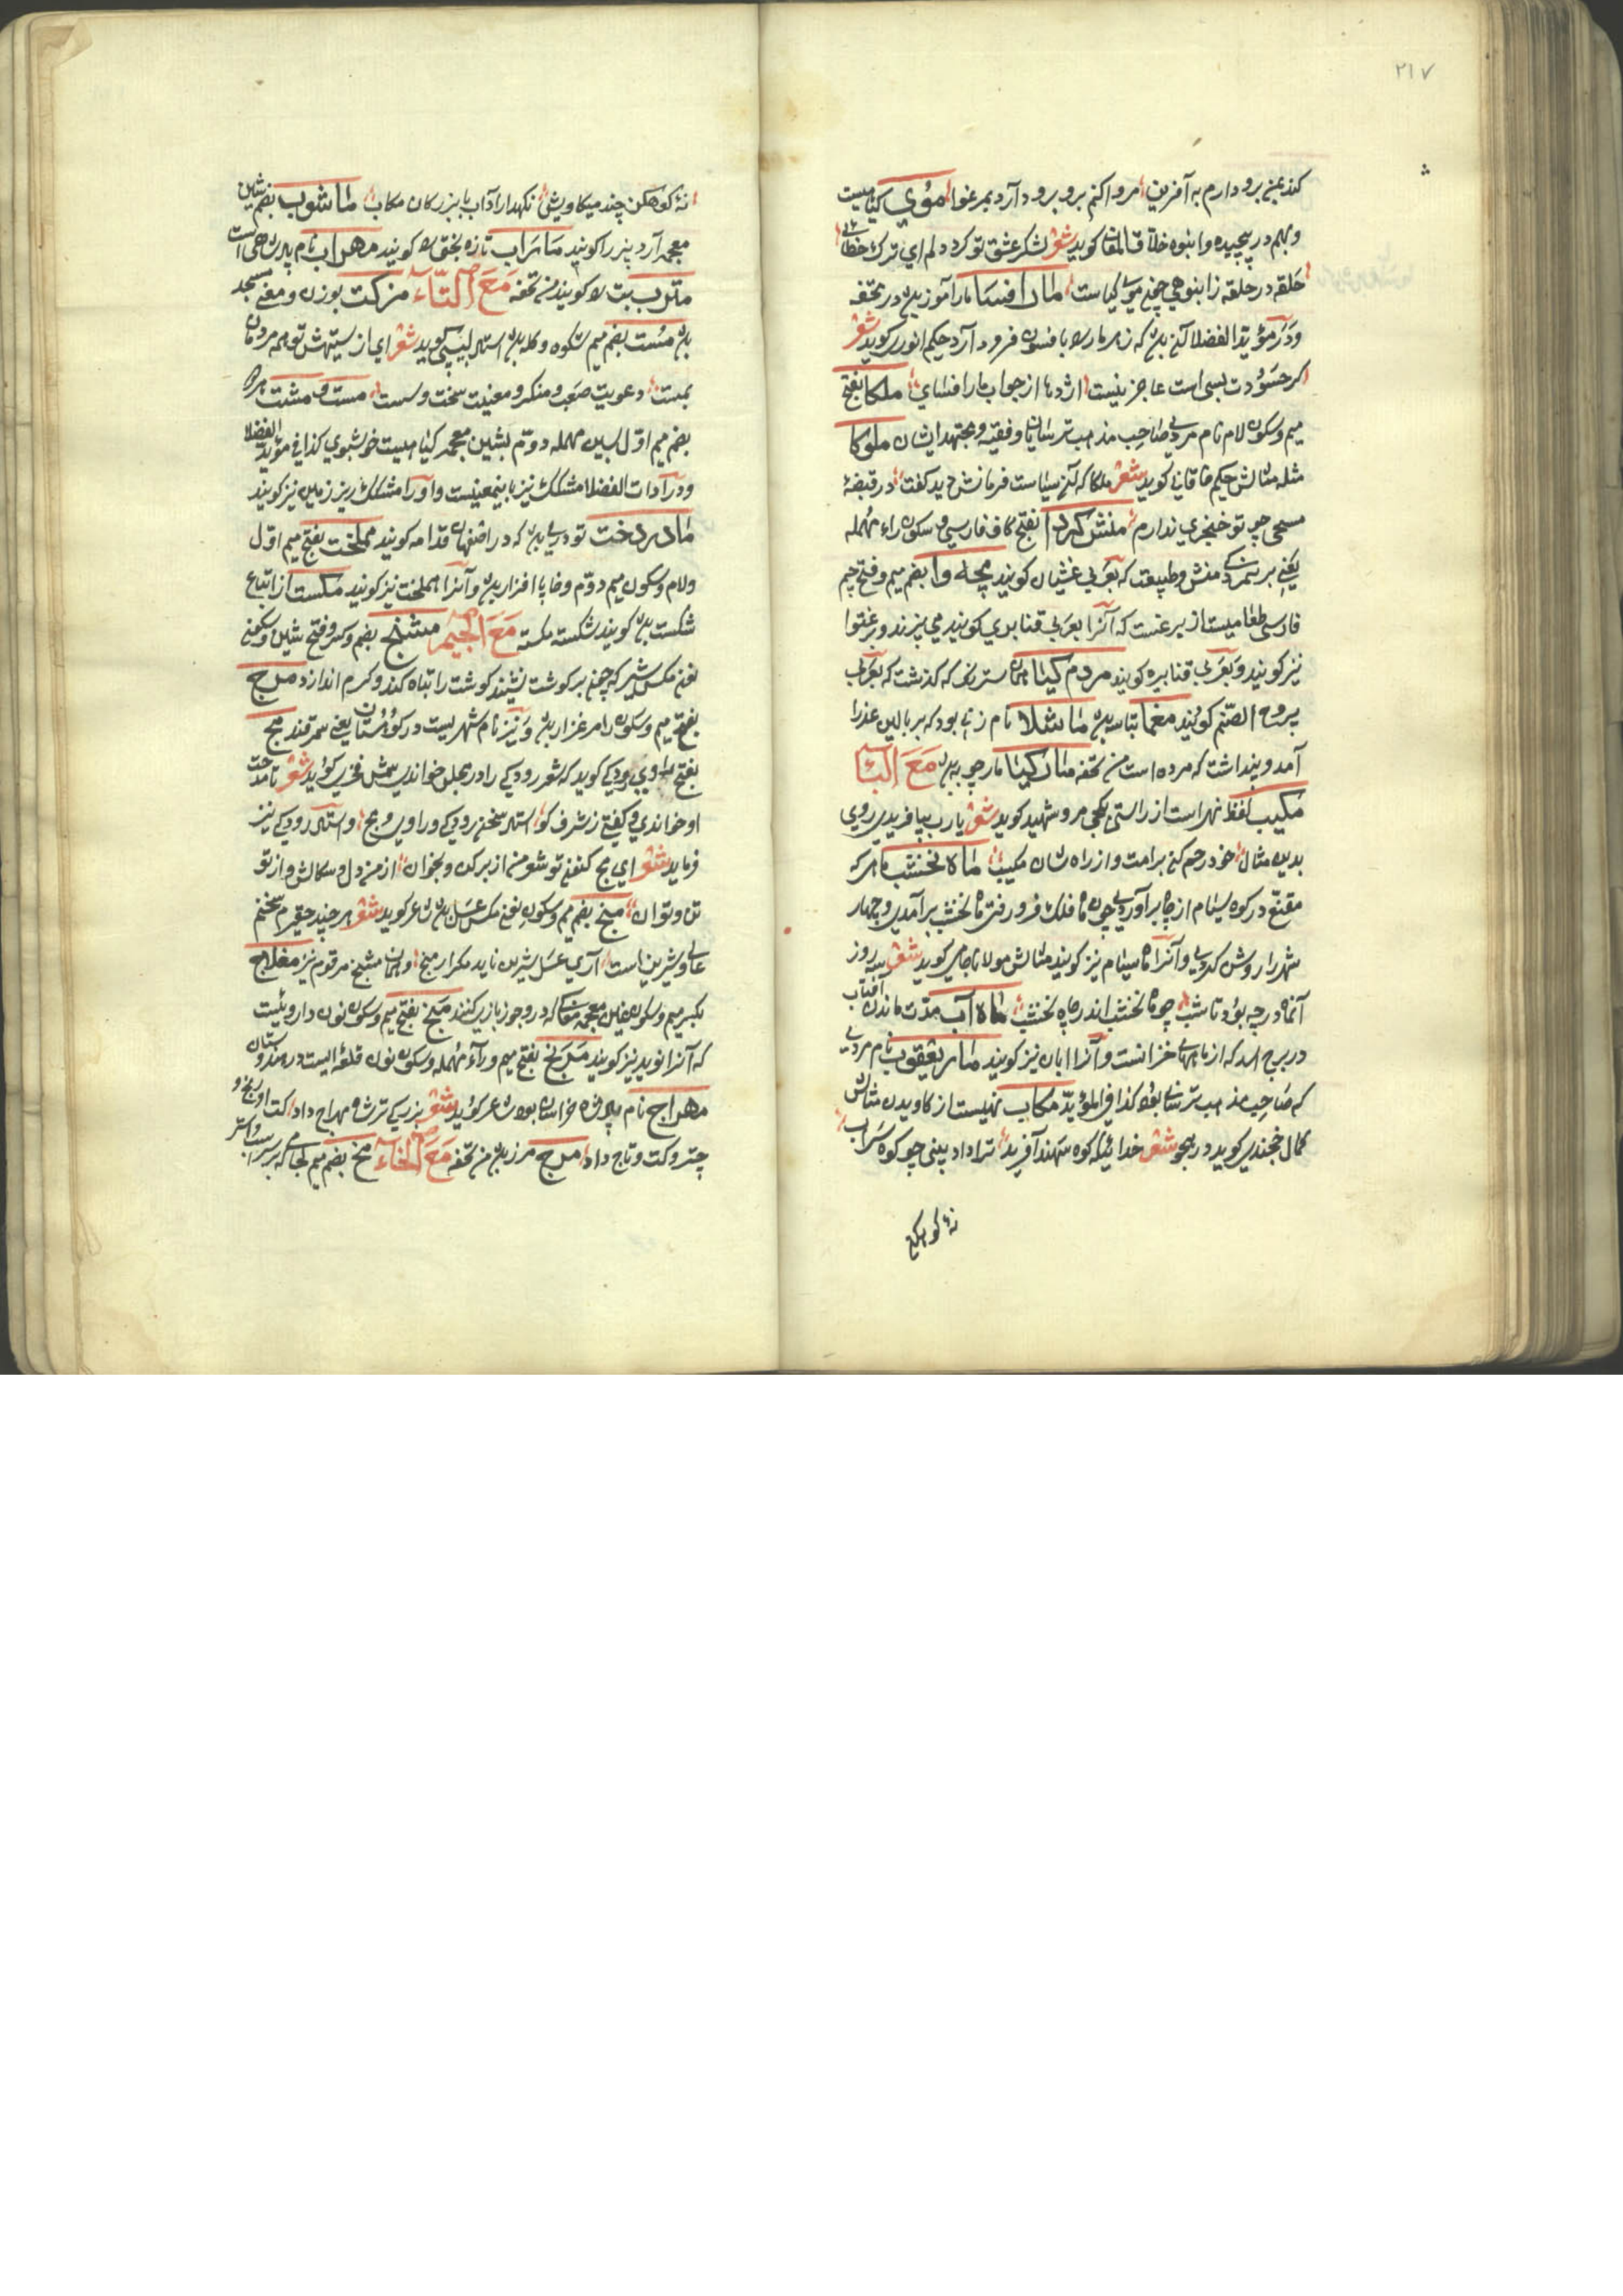 ۲۱۷
کند بمن برو دارم به آفرین مروا کنم برو برود آرد بمرغوا موی کیاهیست
و بهم در پیچیده و انبوه خلاق المعانی کوید شعر لشکر عشق تو کرد دلم ای ترک خطائی
حلقه در حلقه زانبوهی چون موی کیاست مار افسا مار آموز بدر تحفه
و در مؤید الفضلا آنکه زهر مار را بافسون فرود آرد حکیم انوری کوید شعر
کر حسودت بسی است عاجز نیست اژدها از جواب مار افسای ملکا بفتح
میم وسکون لام نام مردی صاحب مذهب ترسایان وفقیه ومجتهد ایشان ملوکا
مثله مثالش حکیم خاقانی کوید شعر ملکا که این سیاست فرمانش دید کفت در قبضهٔ
مسیح چو تو خنجری ندارم منش کردا بفتح کاف فارسی و سکون راء مهمله
یعنی بر منش وطبیعت که بعربی غشیان کویند مچه وا بضم میم وفتح جیم
فارسی طعامیست از برغست که آنرا بعربی قنابری کویند می پزند و برغستوا
نیز کویند و بعربی قنابیره کویند مردم کیا همان سترنک که کذشت که بعربی
یبروح الصنم کویند مغما تباسه ماشلا نام زنی بود که بر بالین عذرا
آمد و پنداشت که مرده است من تحفه مار کیا مارچوبه مع الباء
مکیب لفظ نهی است از راستی بکجی مرو شهید کوید شعر یا رب بیافریدی رویی
بدین مثال خود رحم کن بر امت و از راه شان مکیب ماه نخشب ماهی که
مقنع در کوه سیام از چاه برآوردی چون ماه فلک فرو رفتی ماه نخشب برآمدی و چهار
شهر را روشن کردی و آنرا ماه سیام نیز کویند مثالش مولانا جامی کوید شعر سه روز
آنماه در چه بود تا شب چو ماه نخشب اندر چاه نخشب ماه آب مدت ماندن آفتاب
در برج اسد که از ماههای خزانست و آنرا ابان نیز کویند مار یعقوب نام مردی
که صاحب مذهب ترسائی بود کذا فی المؤید مکاب نهیست از کاویدن مثالش
کمال خجندی کوید در هجو شعر خدائیکه کوه سهند آفرید ترا داد بینی چو کوه سراب
نهٔ کوهکن
نهٔ کوهکن چند میکاویش نکهدار آداب با بزرکان مکاب ماشوب بضم شین
معجمه آرد بیز را کویند ماراب تازه بختی را کویند مهراب نام پادشاهی است
مترب بیت را کویند من تحفه مع التاء مزکت بوزن و معنی مسجد
باشد مست بضم میم شکوه و کله باشد استاد لبیبی کوید شعر ای از ستیهش تو همه مردمان
بمست دعویت صعب و منکر و معنیت سخت و سست مست و مشت هر دو
بضم میم اوّل بسین مهمله دوم بشین معجمه کیاهیست خوشبوی کذا فی مؤید الفضلا
و در آدات الفضلا مشکک نیز باینمعنیست و او را مشکک زیر زمین نیز کویند
مادردخت تودری باشد که در اصفهان قدامه کویند مملخت بفتح میم اوّل
ولام وسکون میم دوّم وخا پا افزار باشد و آنرا هملخت نیز کویند مکست از اتباع
شکست باشد کویند شکسته مکسته مع الجیم مشنج بضم وکسر وفتح شین وسکون
نون مکسی کبیر که چون بر کوشت نشیند کوشت را تباه کند و کرم اندازد مرج
بفتح میم وسکون را مرغزار باشد و نیز نام شهریست در کوهستان یعنی سمرقند مج
بفتح راوی رودکی کوید که شعر رودکی را در مجلس خواندی شمس فخری کوید شعر تا مدحت
او خواندی و کفتی ز شرف کو استاد سخن رودکی و راوی و مج و استاد رودکی نیز
فرماید شعر ای مج کنون تو شعر من از بر کن و بخوان از من دل و سکالش و از تو
تن و توان منج بضم میم وسکون نون مکس عسل باشد شاعر کوید شعر هر چند حقیرم سخنم
عالی و شیرین است آری عسل شیرین ناید مکر از منج و همان مشنج مرقوم نیز مغلاج
بکسر میم وسکون غین معجمه مغاکی که در و جوز بازی کنند منج بفتح میم وسکون نون داروئیست
که آنرا نوید نیز کویند مرنج بفتح میم و راء مهمله وسکون نون قلعهٔ ایست در هندوستان
مهراج نام پادشاه خراسان بود شاعر کوید شعر بزرکی ترش مهراج داد کت او رنج و
چتر و کت و تاج داد مرج مرز باشد من تحفه مع الخاء مخ بضم میم لجامی که بر سر اسب و استر